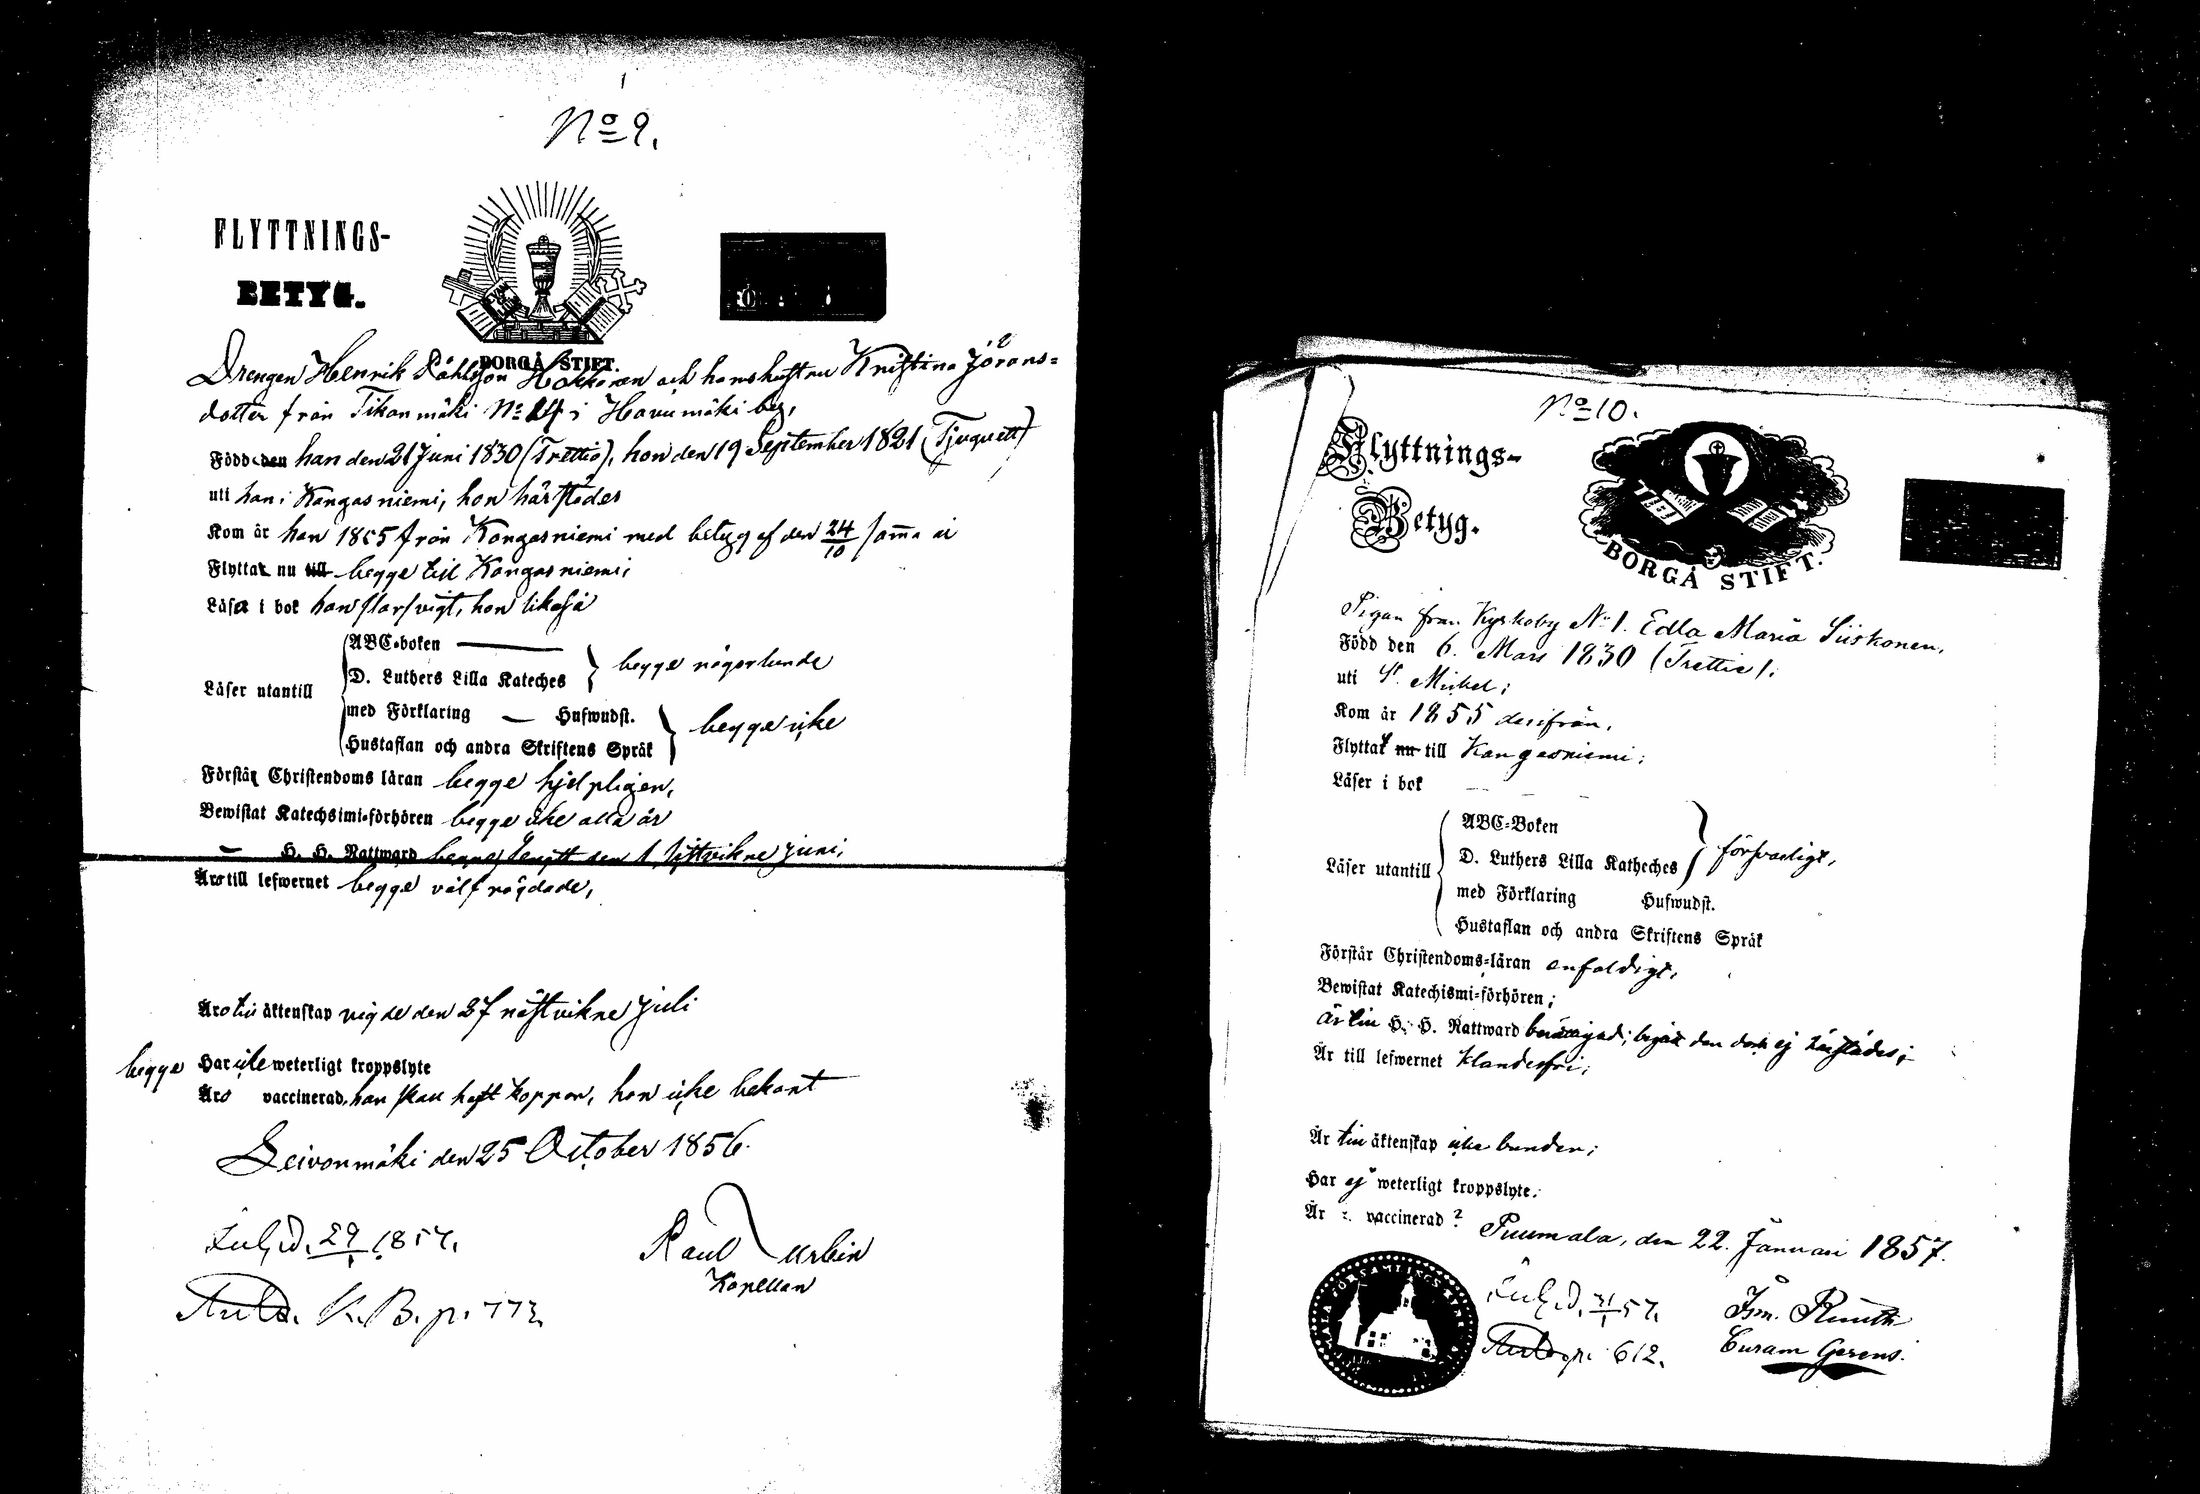 No 9.
FLYTTNINGS-
BETYG.
BORGÅ STIFT.
Drengen Henrik Påhlsson Hokkanen och hans hustru Kristina Jörans=
dotter från Tikanmäki No 24 i Havumäki by,
Född den han den 21 Juni 1830 (Trettio), hon den 19 September 1821 (Tjuguett)
uti han i Kangasniemi, hon härstädes
Kom år han 1855 från Kangasniemi med betyg af den 24/10 samma år
Flytta nu till begge till Kangasniemi,
Läsa i bok han svagt, hon likaså
ABC-boken
D. Luthers Lilla Kateches
begge någorlunda
Läser utantill
med Förklaring — Hufwudst.
Hustaflan och andra Skriftens Språk
begge icke
Förstå Christendoms läran begge hjelpligen,
Bewistat Katechsimi-förhören begge icke alla år
— H. H. Nattward begge begått den 1 sistvikne juni,
Äro till lefwernet begge välfrägdade,
Äro till äktenskap vigde den 27 nästvikne juli
begge Har icke weterligt kroppslyte
Äro vaccinerad, han skall haft koppor, hon icke bekant
Leivonmäki den 25 October 1856.
29/1 1857.
Paul Durbin
Kapellan
K.B. p. 773
No 10.
Flyttnings-
Betyg.
BORGÅ STIFT.
Pigan från Kyrkoby No 1. Edla Maria Siiskonen,
Född den 6. Mars 1830 (Trettio);
uti St. Michel;
Kom år 1855 derifrån,
Flyttat nu till Kangasniemi;
Läser i bok
ABC-Boken
D. Luthers Lilla Katheches
försvarligt,
Läser utantill
med Förklaring Hufwudst.
Hustaflan och andra Skriftens Språk
Förstår Christendoms-läran enfaldigt,
Bewistat Katechismi-förhören;
är till H. H. Nattward berättigad; begått den dock ej härstädes;
Är till lefwernet klanderfri;
Är till äktenskap icke bunden;
Har ej weterligt kroppslyte.
Är vaccinerad?
Puumala, den 22. Januari 1857.
31/1 57.
p. 612.
Ism. Rinuth
Curam Gerens.